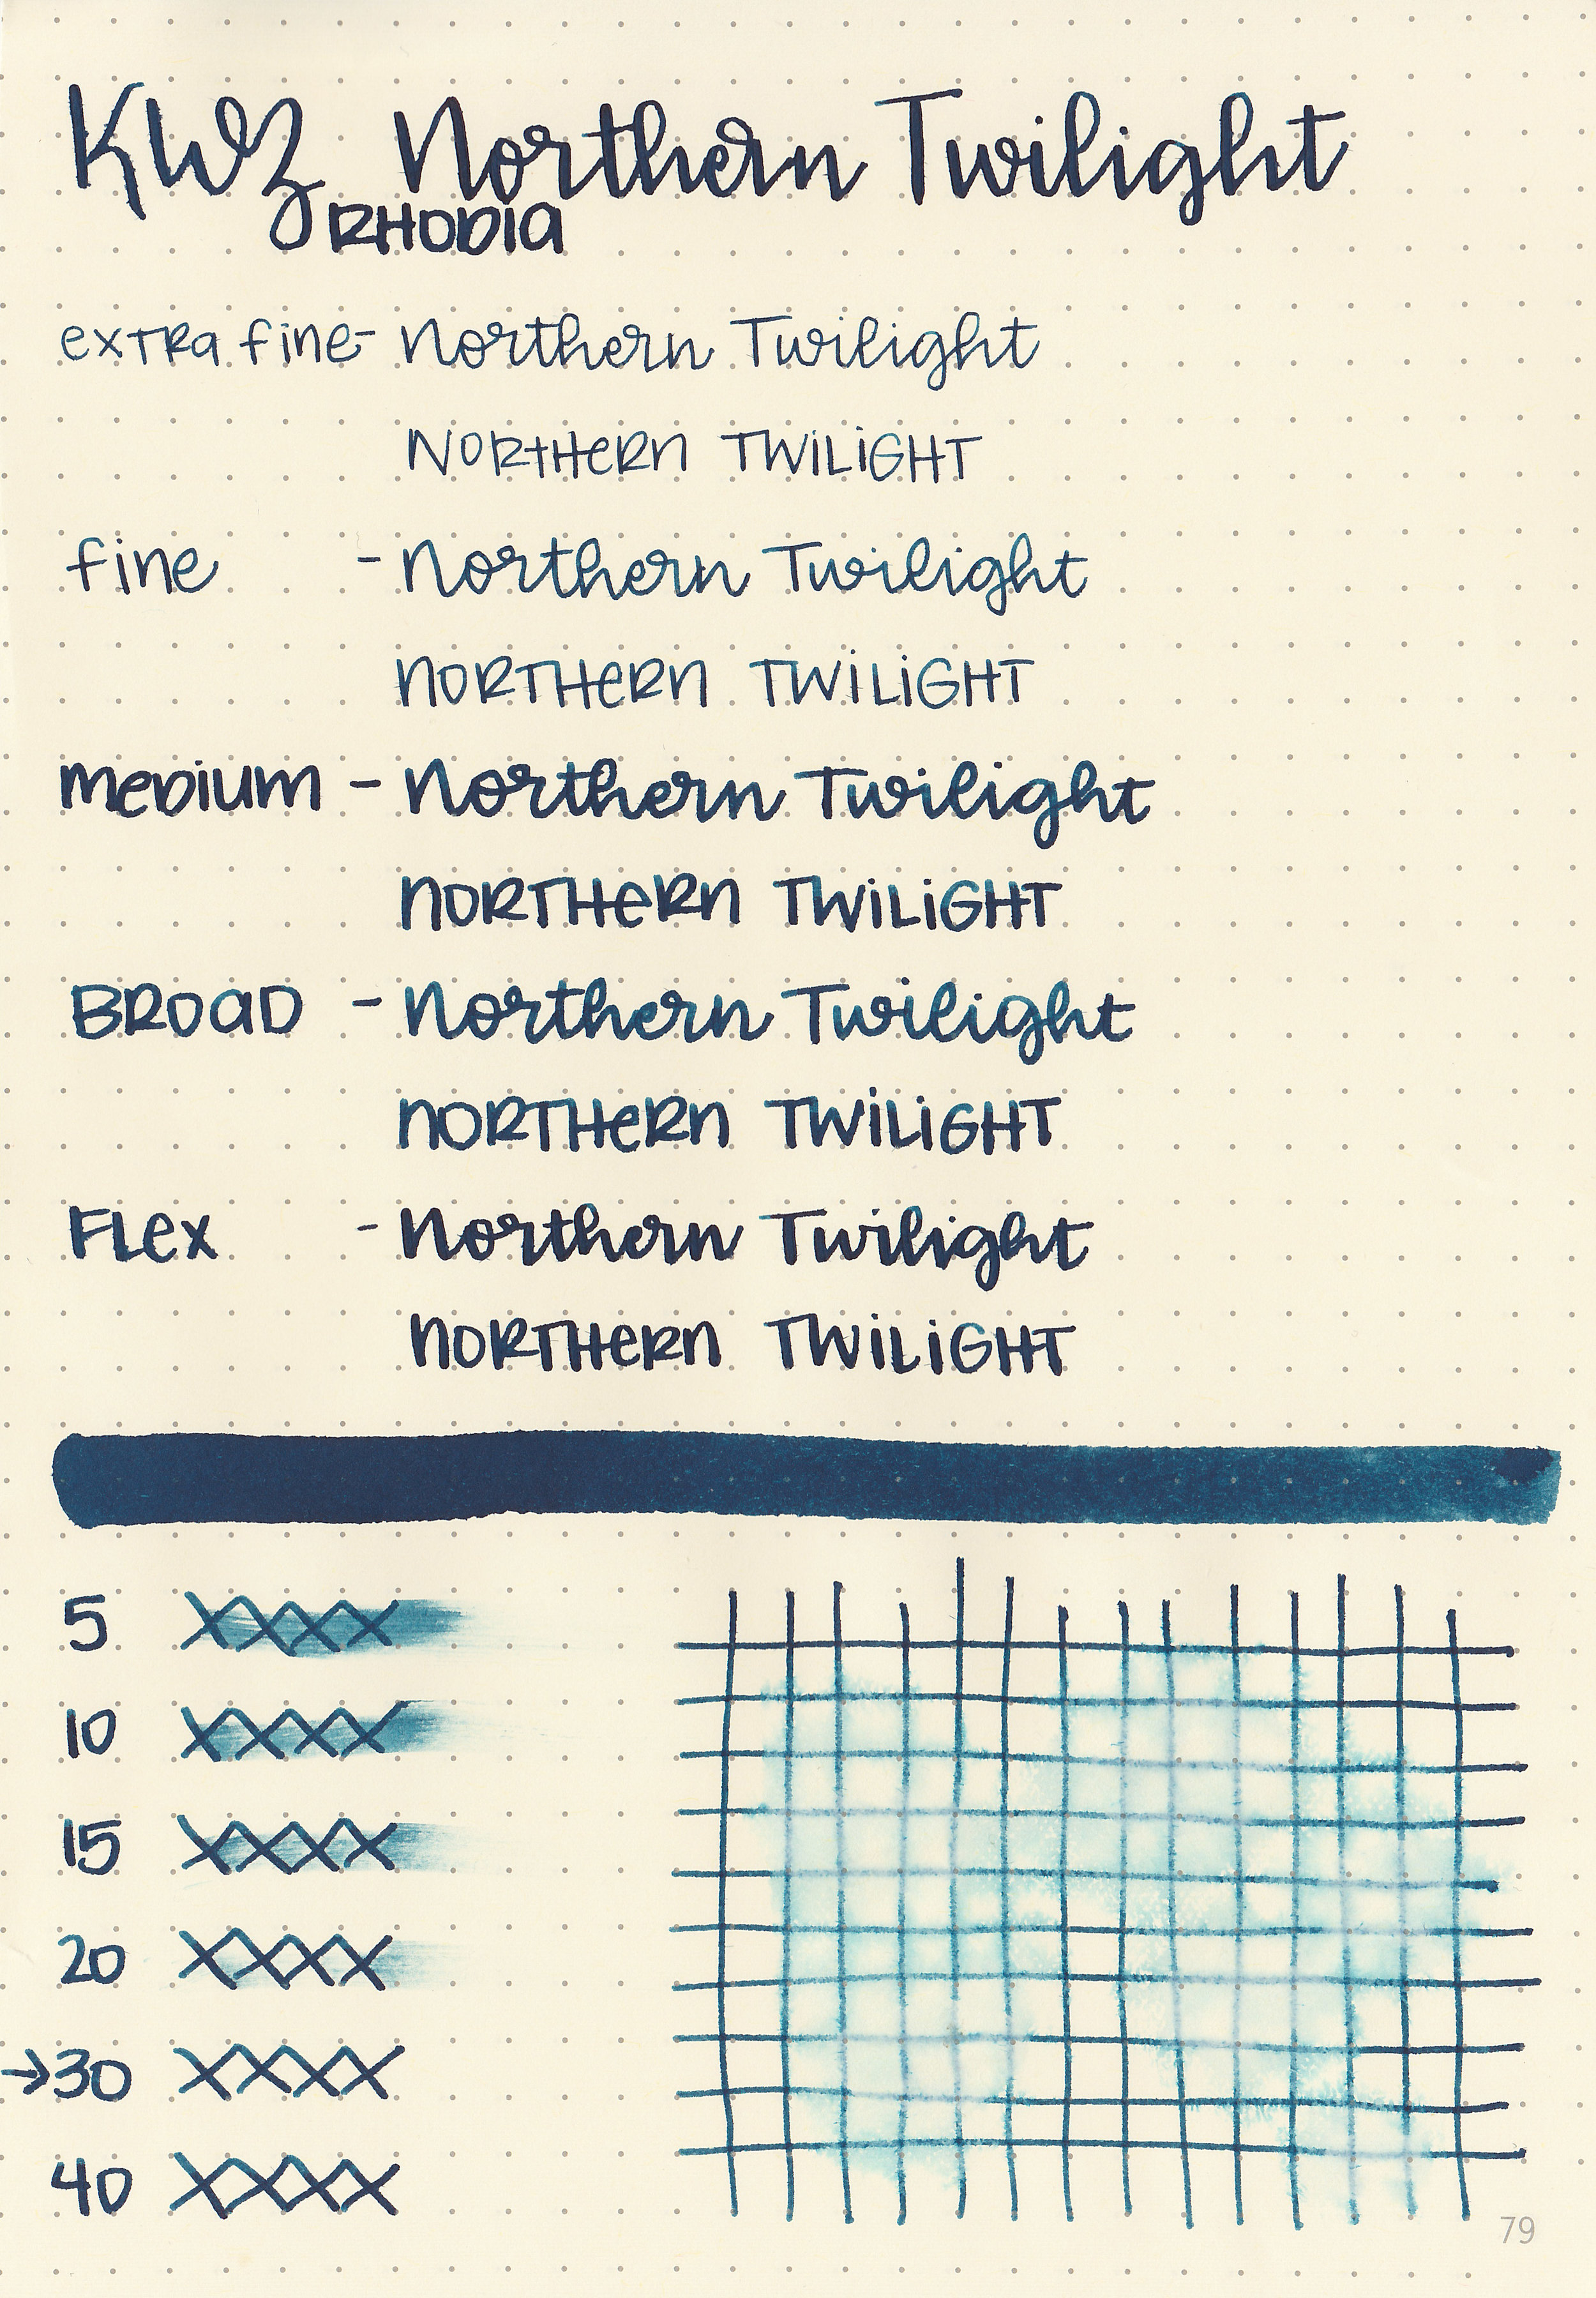 KWZ Northern Twilight
RHODIA
extra fine - Northern Twilight
NORTHERN TWILIGHT
fine - Northern Twilight
NORTHERN TWILIGHT
medium - Northern Twilight
NORTHERN TWILIGHT
BROAD - Northern Twilight
NORTHERN TWILIGHT
FLex - Northern Twilight
NORTHERN TWILIGHT
5 XXXX
10 XXXX
15 XXXX
20 XXXX
→30 XXXX
40 XXXX
79